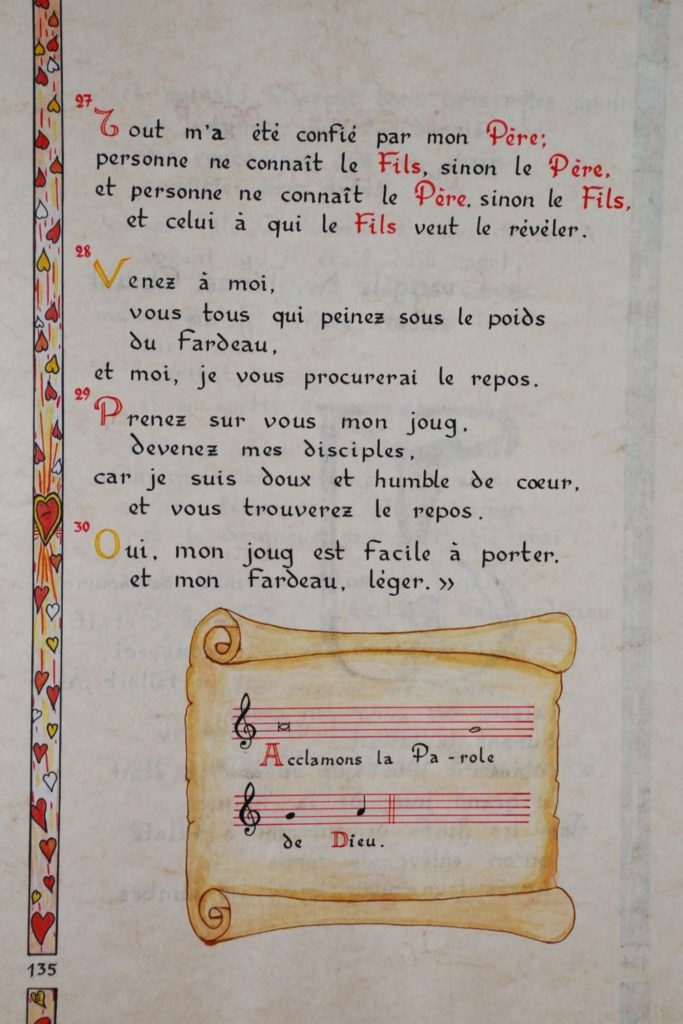 27
Tout m'a été confié par mon Père;
personne ne connaît le Fils, sinon le Père,
et personne ne connaît le Père, sinon le Fils,
et celui à qui le Fils veut le révéler.
28
Venez à moi,
vous tous qui peinez sous le poids
du fardeau,
et moi, je vous procurerai le repos.
29
Prenez sur vous mon joug,
devenez mes disciples,
car je suis doux et humble de cœur,
et vous trouverez le repos.
30
Oui, mon joug est facile à porter,
et mon fardeau, léger. »
Acclamons la Pa - role
de Dieu.
135